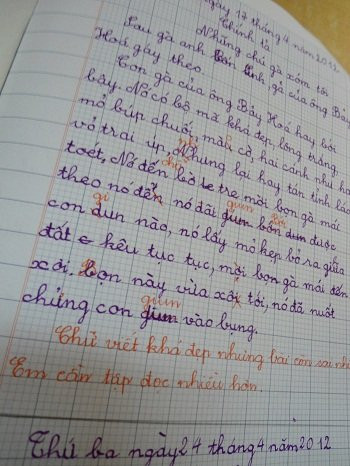 ngày 17 tháng 4 năm 2012
Chính tả
Những chú gà xóm tôi
Sau gà anh Bốn Linh, gà của ông Bảy
Hoá gáy theo.
Con gà của ông Bảy Hoá hay bới
bậy. Nó có bộ mã khá đẹp, lông trắng,
mỏ búp chuối, mào cờ, hai cánh như
vỏ trai úp. Nhưng lại hay tán tỉnh láo
toét. Nó đến bờ tre mời bọn gà mái
theo nó đến nó đãi giun bới được
con dun nào, nó lấy mỏ kẹp bỏ ra giữa
đất kêu tục tục, mời bọn gà mái đến
xơi. Bọn này vừa xới tới, nó đã nuốt
chửng con giun vào bụng.
Chữ viết khá đẹp nhưng bài còn sai
Em cần tập đọc nhiều hơn.
Thứ ba ngày 24 tháng 4 năm 2012